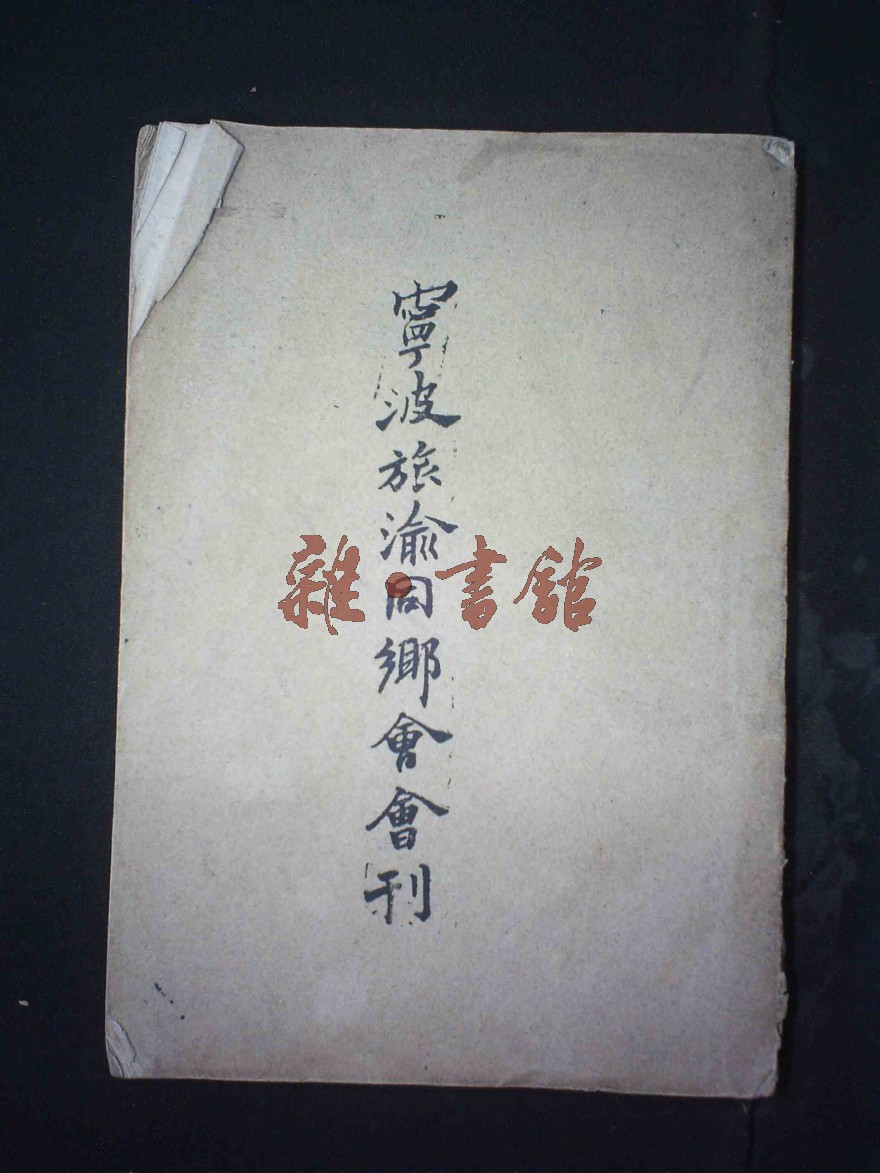 寧波旅渝同鄉會會刊
雜·書館